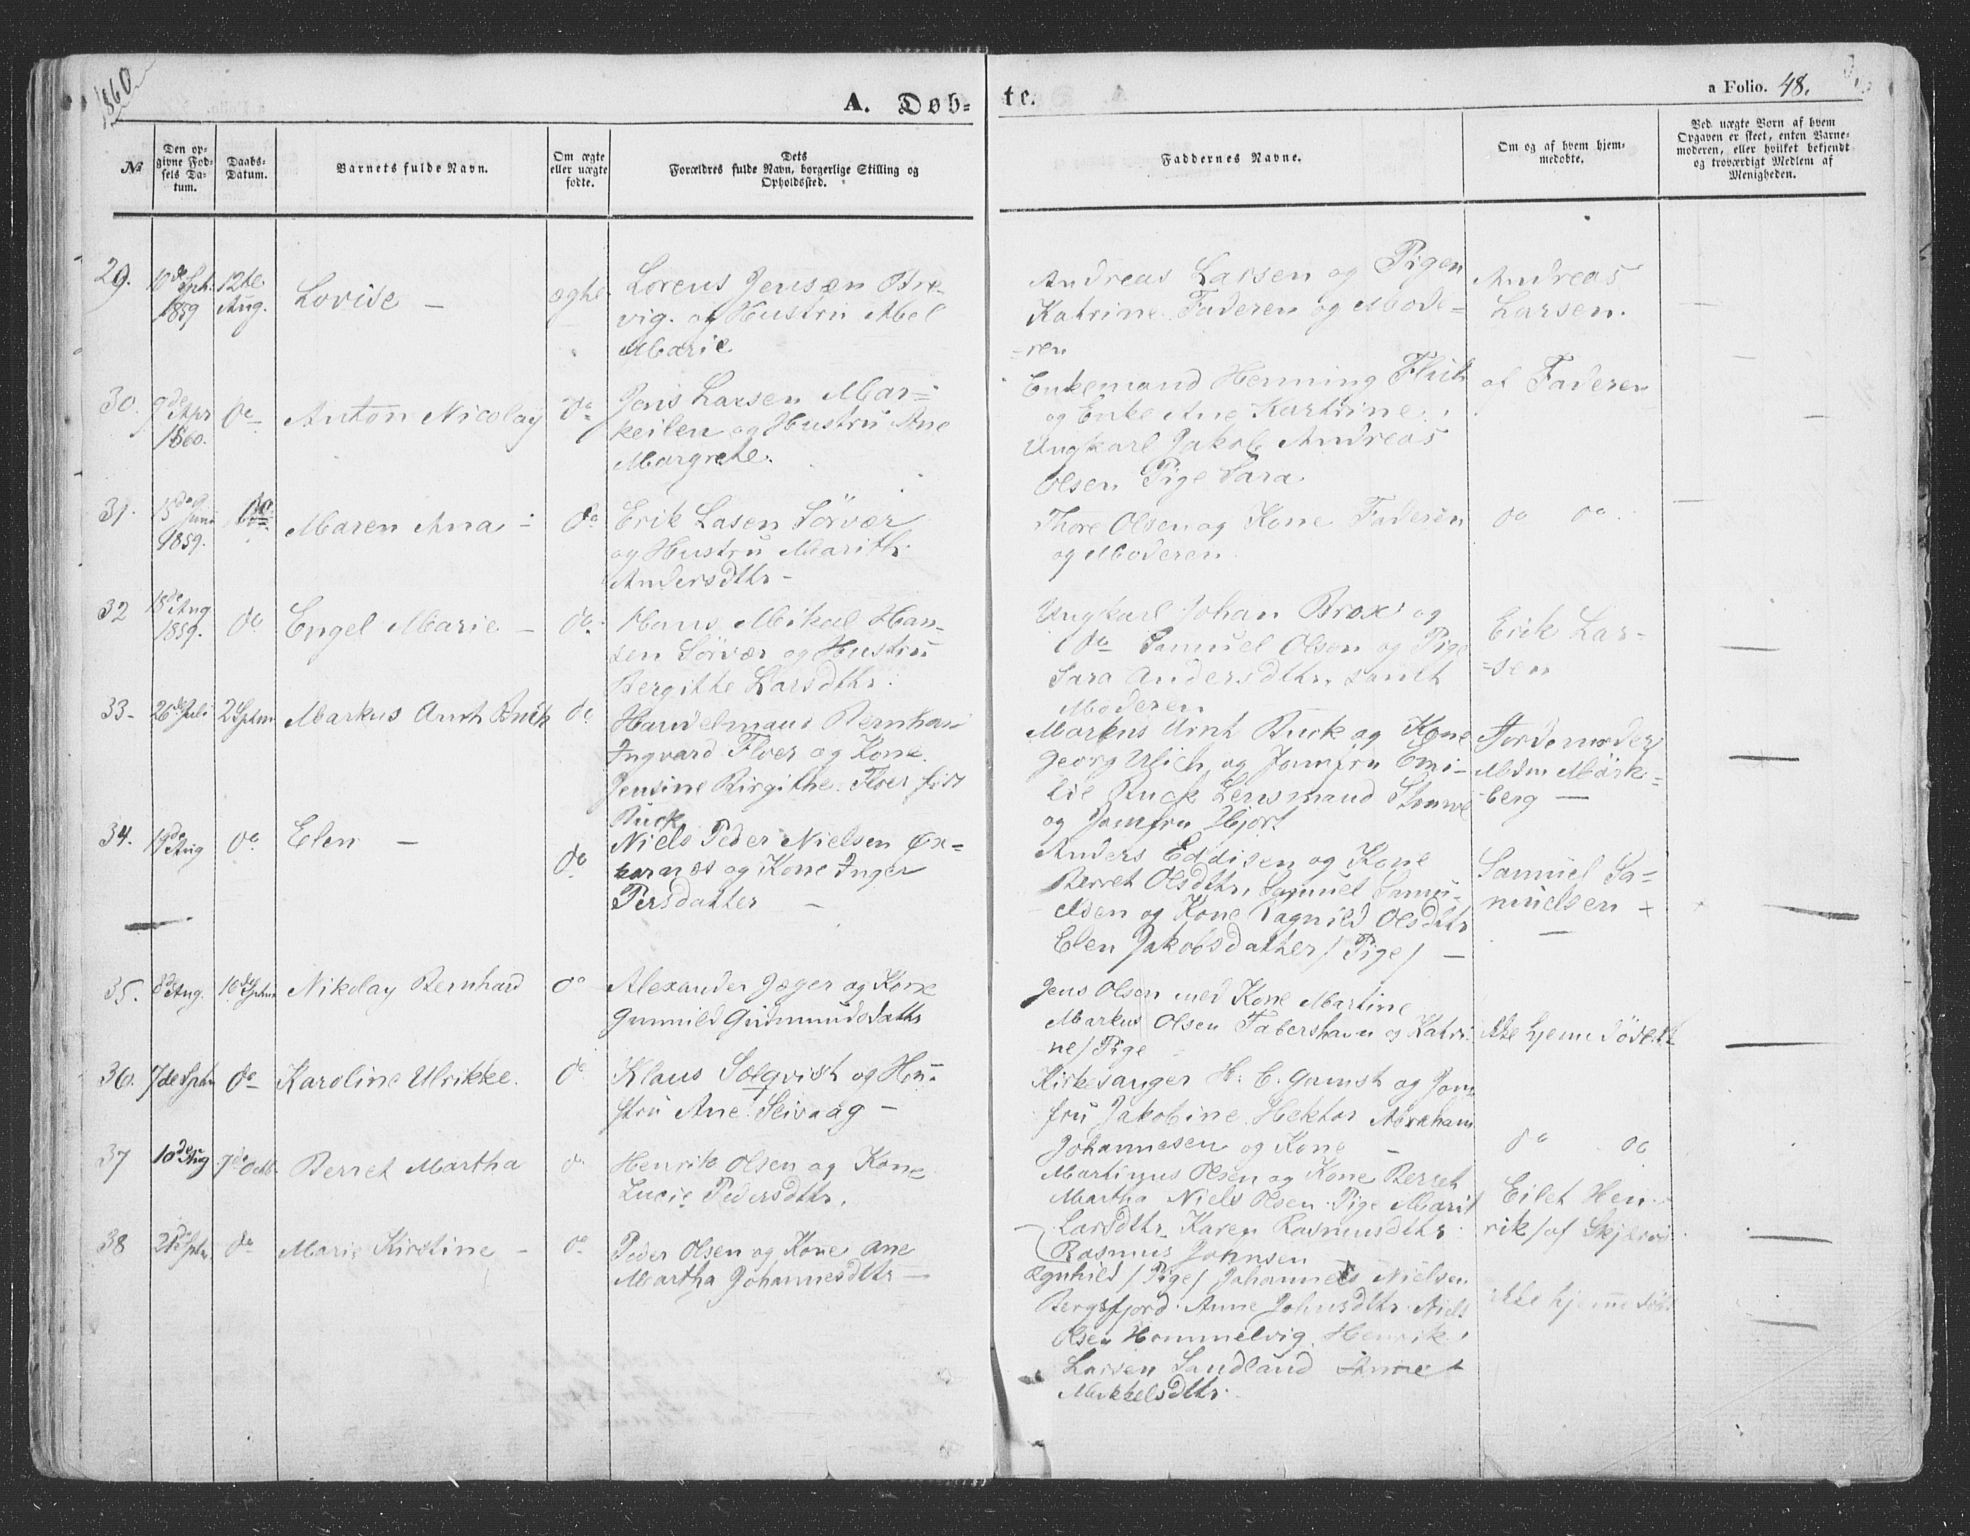 1860
A. Døb-
te.
a Folio. 48.
№
Den op-
givne Fød-
sels Da-
tum.
Daabs-
Datum.
Barnets fulde Navn.
Om ægte
eller uægte
fødte.
Dets
Forældres fulde Navn, borgerlige Stilling og
Opholdssted.
Faddernes Navne.
Om og af hvem hjem-
medøbte.
Ved uægte Børn af hvem
Opgaven er skeet, enten Barne-
moderen, eller hvilket bekjendt
og troværdigt Medlem af
Menigheden.
29.
10de Sptr.
1859
12te
Aug.
Lovise —
ægte
Lorens Jensen Bre-
vig. og Hustru Abel
Marie
Andreas Larsen og Pigen
Katrine Faderen og Mode-
-ren
Andreas
Larsen.
30.
9de Apr
1860.
do
Anton Nicolay
do
Jens Larsen Mar-
keilen og Hustru Ane
Margrete.
Enkemand Henning
og Enke Ane Kartrine.
Ungkarl Jakob Andreas
Olsen Pige Sara
af Faderen
31.
15de Juni
1859.
do
Maren Ana -
do
Erik Lasen Sörvær
og Hustru Marith
Andersdttr -
Thore Olsen og Kone Faderen
og Moderen.
do do.
32
18de Aug
1859.
do
Engel Marie -
do
Hans Mikal Han-
sen Sörvær og Hustru
Bergitte Larsdttr.
Ungkarl Johan Brox og
do Samuel Olsen og Pige
Sara Andersdttr. samt
Moderen
Erik Lar-
-sen
33-
26de Juli
2 Sptm
Markus Arnt Buck
do
Handelmand Bernhar
Ingvard Floer og Kone
Jensine Birgithe Floer föd
Buck
Markus Arnt Buck og Kone
Georg Ulich og Jomfru Emi-
lie Buck Lensmand
og Jomfru Hjort
Jordemoder
Mdm Mörk-
-berg —
34.
19de Aug
do
Elen —
do
Niels Peder Nielsen Öx-
karnæs og Kone Inger
Persdatter —
Anders Eddisen og Kone
Berret Olsdttr, Samuel Samu-
elsen og Kone Ragnild Olsdttr
Elen Jakobsdatter / Pige / —
Samuel Sa-
muelsen +
35.
8de Aug.
16de Sptm
Nikolay Bernhard
do
Alexander Jæger og Kone
Gunnild Gudmundsdattr
Jens Olsen med Kone Martine
Markus Olsen Tabershavn og Katri-
ne / Pige
Ikke hjemmedöbt
36.
7de Sptm
do
Karoline Ulrikke.
do
Klaus Solqvist og Hu-
stru Ane Seivaag -
Kirkesanger H. C. Gamst og Jom
fru Jakobine Hektor Abraham
Johannesen og Kone -
do do
37
10de Aug
7de Octb
Berret Martha
do
Henrik Olsen og Kone
Lucie Pedersdttr.
Martinus Olsen og Kone Berret
Martha Niels Olsen Pige Marit
Larsdttr Karen Rasmusdttr
Rasmus Johnsen
Eilet Hen-
rik / af Skjervö
38
21de Sptm
do
Marie Kirstine -
do
Peder Olsen og Kone Ane
Martha Johannesdttr —
Ragnhild / Pige / Johannes Nielsen
Bergsfjord. Anne Johnsdttr Niels
Olsen Hommelvig. Henrik
Larsen Sandland Anne
Mikkelsdttr.
ikke hjemmedöbt